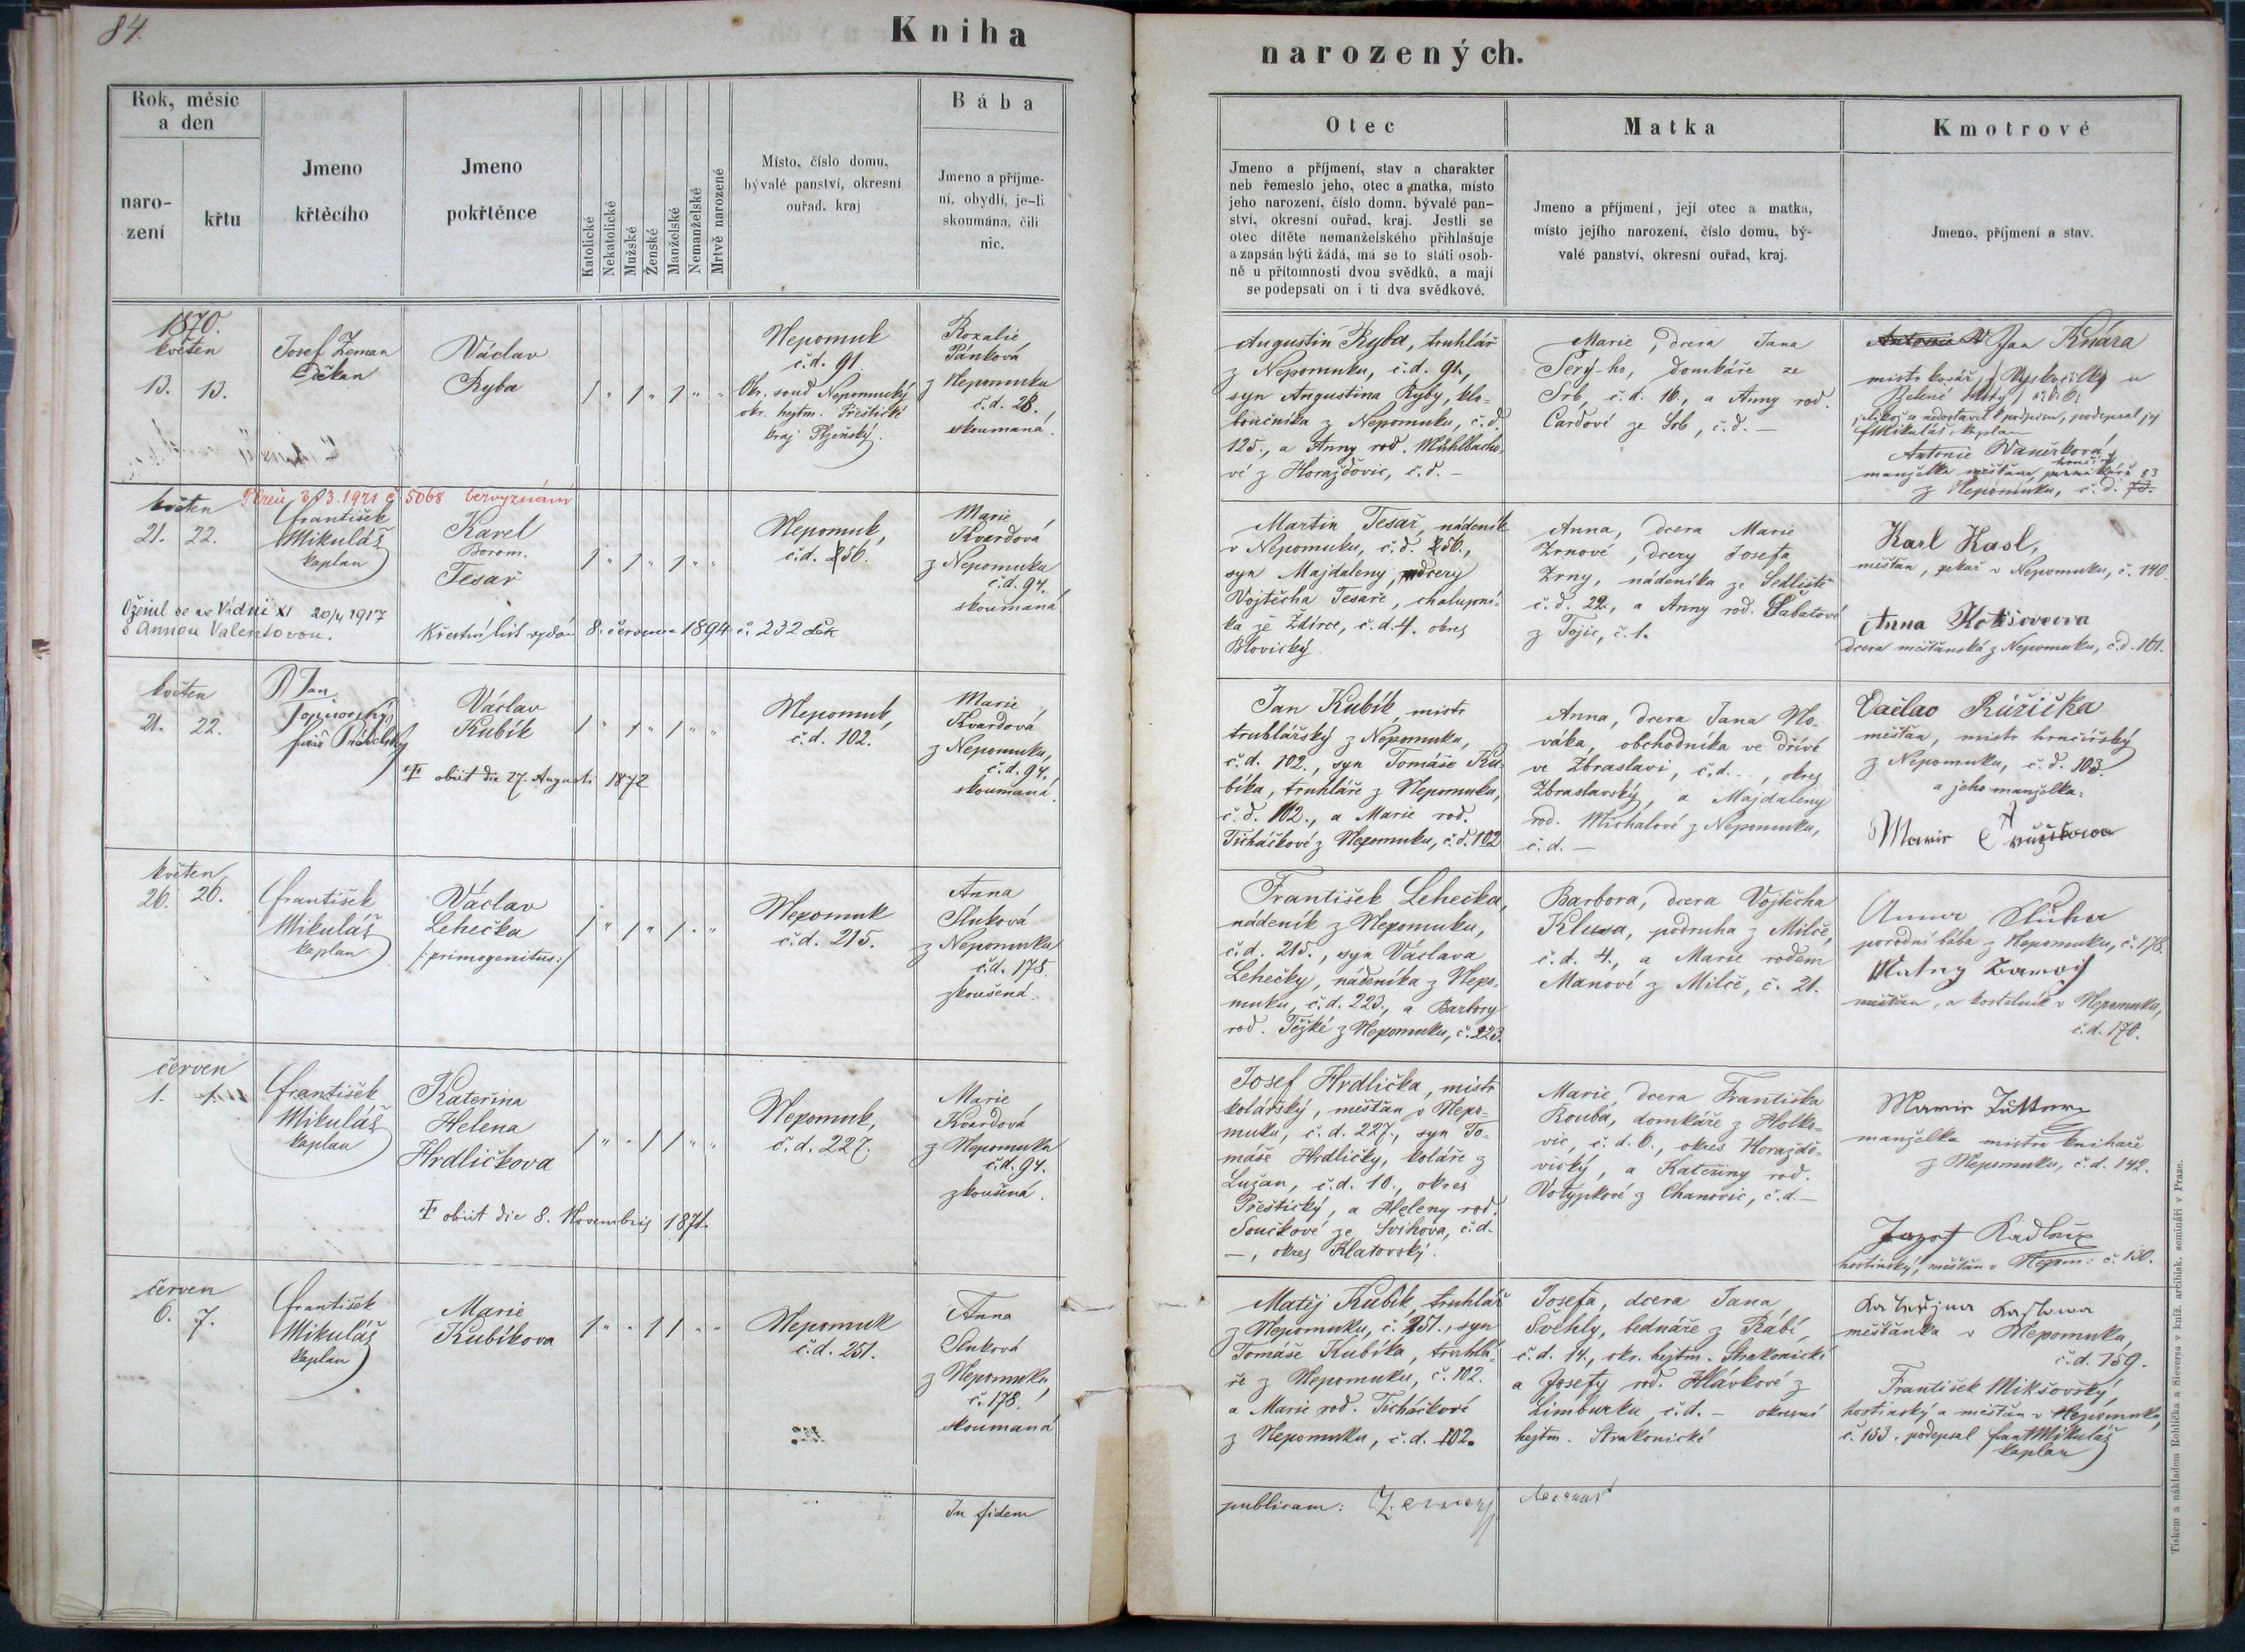 84.
Kniha
narozených.
Rok, měsíc
a den
naro-
zení
křtu
Jmeno
křtěcího
Jmeno
pokřtěnce
Katolické
Nekatolické
Mužské
Ženské
Manželské
Nemanželské
Mrtvě narozené
Místo, číslo domu,
bývalé panství, okresní
ouřad, kraj
Bába
Jmeno a příjme-
ní, obydlí, je-li
skoumána, čili
nic.
Otec
Jmeno a příjmení, stav a charakter
neb řemeslo jeho, otec a matka, místo
jeho narození, číslo domu, bývalé pan-
ství, okresní ouřad, kraj. Jestli se
otec dítěte nemanželského přihlašuje
a zapsán býti žádá, má se to státi osob-
ně u přítomnosti dvou svědků, a mají
se podepsati on i ti dva svědkové.
Matka
Jmeno a příjmení, její otec a matka,
místo jejího narození, číslo domu, bý-
valé panství, okresní ouřad, kraj.
Kmotrové
Jmeno, příjmení a stav.
1870.
květen
13. 13.
Josef Zeman
Děkan
Václav
Ryba
1 " 1 " 1 " "
Nepomuk
č.d. 91
Okr. soud Nepomucký
okr. hejtm. Přeštické
kraj Plzeňský.
Rozalie
Pánková
z Nepomuku
č.d. 28.
skoumaná.
Augustin Ryba, truhlář
z Nepomuku, č.d. 91.,
syn Augustina Ryby, klo-
boučníka z Nepomuku, č.d.
125., a Anny rod. Mühlbacho-
vé z Horažďovic, č.d. –
Marie, dcera Jana
Šerý-ho, domkáře ze
Srb, č.d. 16., a Anny rod.
Cardové ze Srb, č.d. –
Antonie W Jan Knára
mistr kovář, z Vyskočilky u
Zelené Hory,
jelikož se nedostavil k podpisu, podepsal jej
fMikuláš, kaplan
Antonie Waněrková,
manželka měšťana,
z Nepomuku, č.d.
květen
21. 22.
5068 bezvyznání
František
Mikuláš
kaplan
Karel
Borom.
Tesař
1 " 1 " 1 " "
Nepomuk,
č.d. 256.
Marie
Kvardová
z Nepomuku
č.d. 94.
skoumaná
Oženil se ve Vídni XI 20/4 1917
s Annou Valentovou.
Křestní list vydán 8. července 1894 č. 232 děk
Martin Tesař, nádeník
v Nepomuku, č.d. 256.,
syn Majdaleny, dcery
Vojtěcha Tesaře, chalupní-
ka ze Ždírce, č.d. 4. okres
Blovický.
Anna, dcera Marie
Zrnové, dcery Josefa
Zrny, nádeníka ze Sedliště
č.d. 22., a Anny rod. Šabatové
z Tojic, č. 1.
Karl Kasl,
měšťan, pekař v Nepomuku, č. 140.
Anna
dcera měšťanská z Nepomuku, č.d. 161.
květen
21. 22.
P Jan
Václav
Kubík
1 " 1 " 1 " "
Nepomuk,
č.d. 102.
Marie
Kvardová
z Nepomuku,
č.d. 94.
skoumaná.
† obiit die 27. Augusti 1872
Jan Kubík, mistr
truhlářský z Nepomuku,
č.d. 102., syn Tomáše Ku-
bíka, truhláře z Nepomuku,
č.d. 102., a Marie rod.
Ticháčkové z Nepomuku, č.d. 102
Anna, dcera Jana No-
váka, obchodníka ve dříví
ve Zbraslavi, č.d. .., okres
Zbraslavský, a Majdaleny
rod. Michalové z Nepomuku,
č.d. –
Vačlav Růžička
měšťan, mistr hrnčířský
z Nepomuku, č.d. 103.
a jeho manželka:
květen
26. 26.
František
Mikuláš
kaplan
Václav
Lehečka
/:primogenitus:/
1 " 1 " 1 " "
Nepomuk
č.d. 215.
Anna
Sluková
z Nepomuku
č.d. 178.
zkoušená.
František Lehečka,
nádeník z Nepomuku,
č.d. 215., syn Václava
Lehečky, nádeníka z Nepo-
muku, č.d. 223., a Barbory
rod. Těžké z Nepomuku, č. 223.
Barbora, dcera Vojtěcha
Klusa, podruha z Milče,
č.d. 4., a Marie rodem
Manové z Milče, č. 21.
Anna
porodní bába z Nepomuku, č. 178.
měšťan, a kostelník v Nepomuku,
č.d. 170.
červen
1. 1.
František
Mikuláš
kaplan
Kateřina
Helena
Hrdličkova
1 " " 1 1 " "
Nepomuk,
č.d. 227.
Marie
Kvardová
z Nepomuku
č.d. 94.
zkoušená.
† obiit die 8. Novembris 1871.
Josef Hrdlička, mistr
kolářský, měšťan v Nepo-
muku, č.d. 227., syn To-
máše Hrdličky, koláře z
Lužan, č.d. 10., okres
Přeštický, a Heleny rod.
Součkové ze Švihova, č.d.
–, okres Klatovský.
Marie, dcera Františka
Bouba, domkáře z Holko-
vic, č.d. 6., okres Horažďo-
vický, a Kateřiny rod.
Votýpkové z Chanovic, č.d. –
manželka mistra knihaře
z Nepomuku, č.d. 142.
hostinský, měšťan v Nepom: č. 130.
červen
6. 7.
František
Mikuláš
kaplan
Marie
Kubíkova
1 " " 1 1 " "
Nepomuk
č.d. 251.
Anna
Sluková
z Nepomuku,
č. 178.
skoumaná
Matěj Kubík, truhlář
z Nepomuku, č. 251., syn
Tomáše Kubíka, truhlá-
ře z Nepomuku, č. 102.
a Marie rod. Ticháčkové
z Nepomuku, č.d. 102.
Josefa, dcera Jana
Švehly, bednáře z Rabí,
č.d. 14., okr. hejtm. Strakonické
a Josefy rod. Hlávkové z
Limburku, č.d. – okresní
hejtm. Strakonické
měšťanka v Nepomuku,
č.d. 159.
František Mikšovský,
hostinský a měšťan v Nepomuku,
č. 133. podepsal frantMikuláš
kaplan
In fidem
publicam: Zeman
Tiskem a nákladem Rohlíčka a Sieversa v kníž. arcibisk. semináři v Praze.